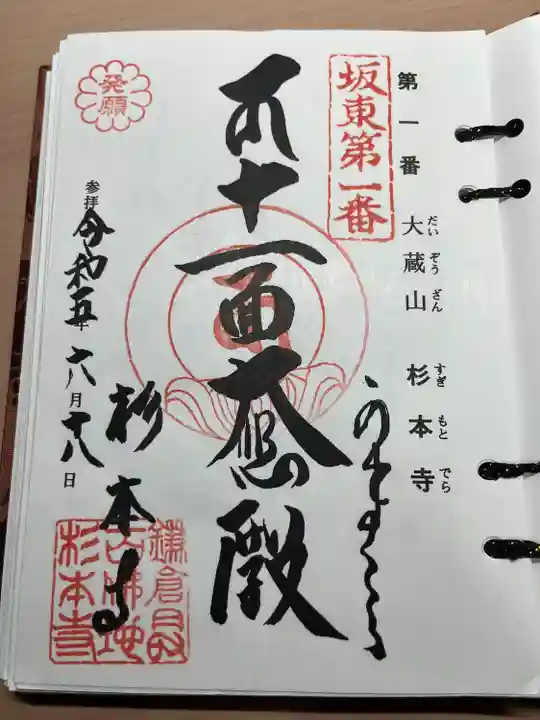 第一番 大蔵山 杉本寺
だいぞうざん すぎもとでら
坂東第一番
十一面大悲殿
杉本寺
鎌倉最
古佛地
杉本寺
発願
参拝 令和五年 六月 十八日